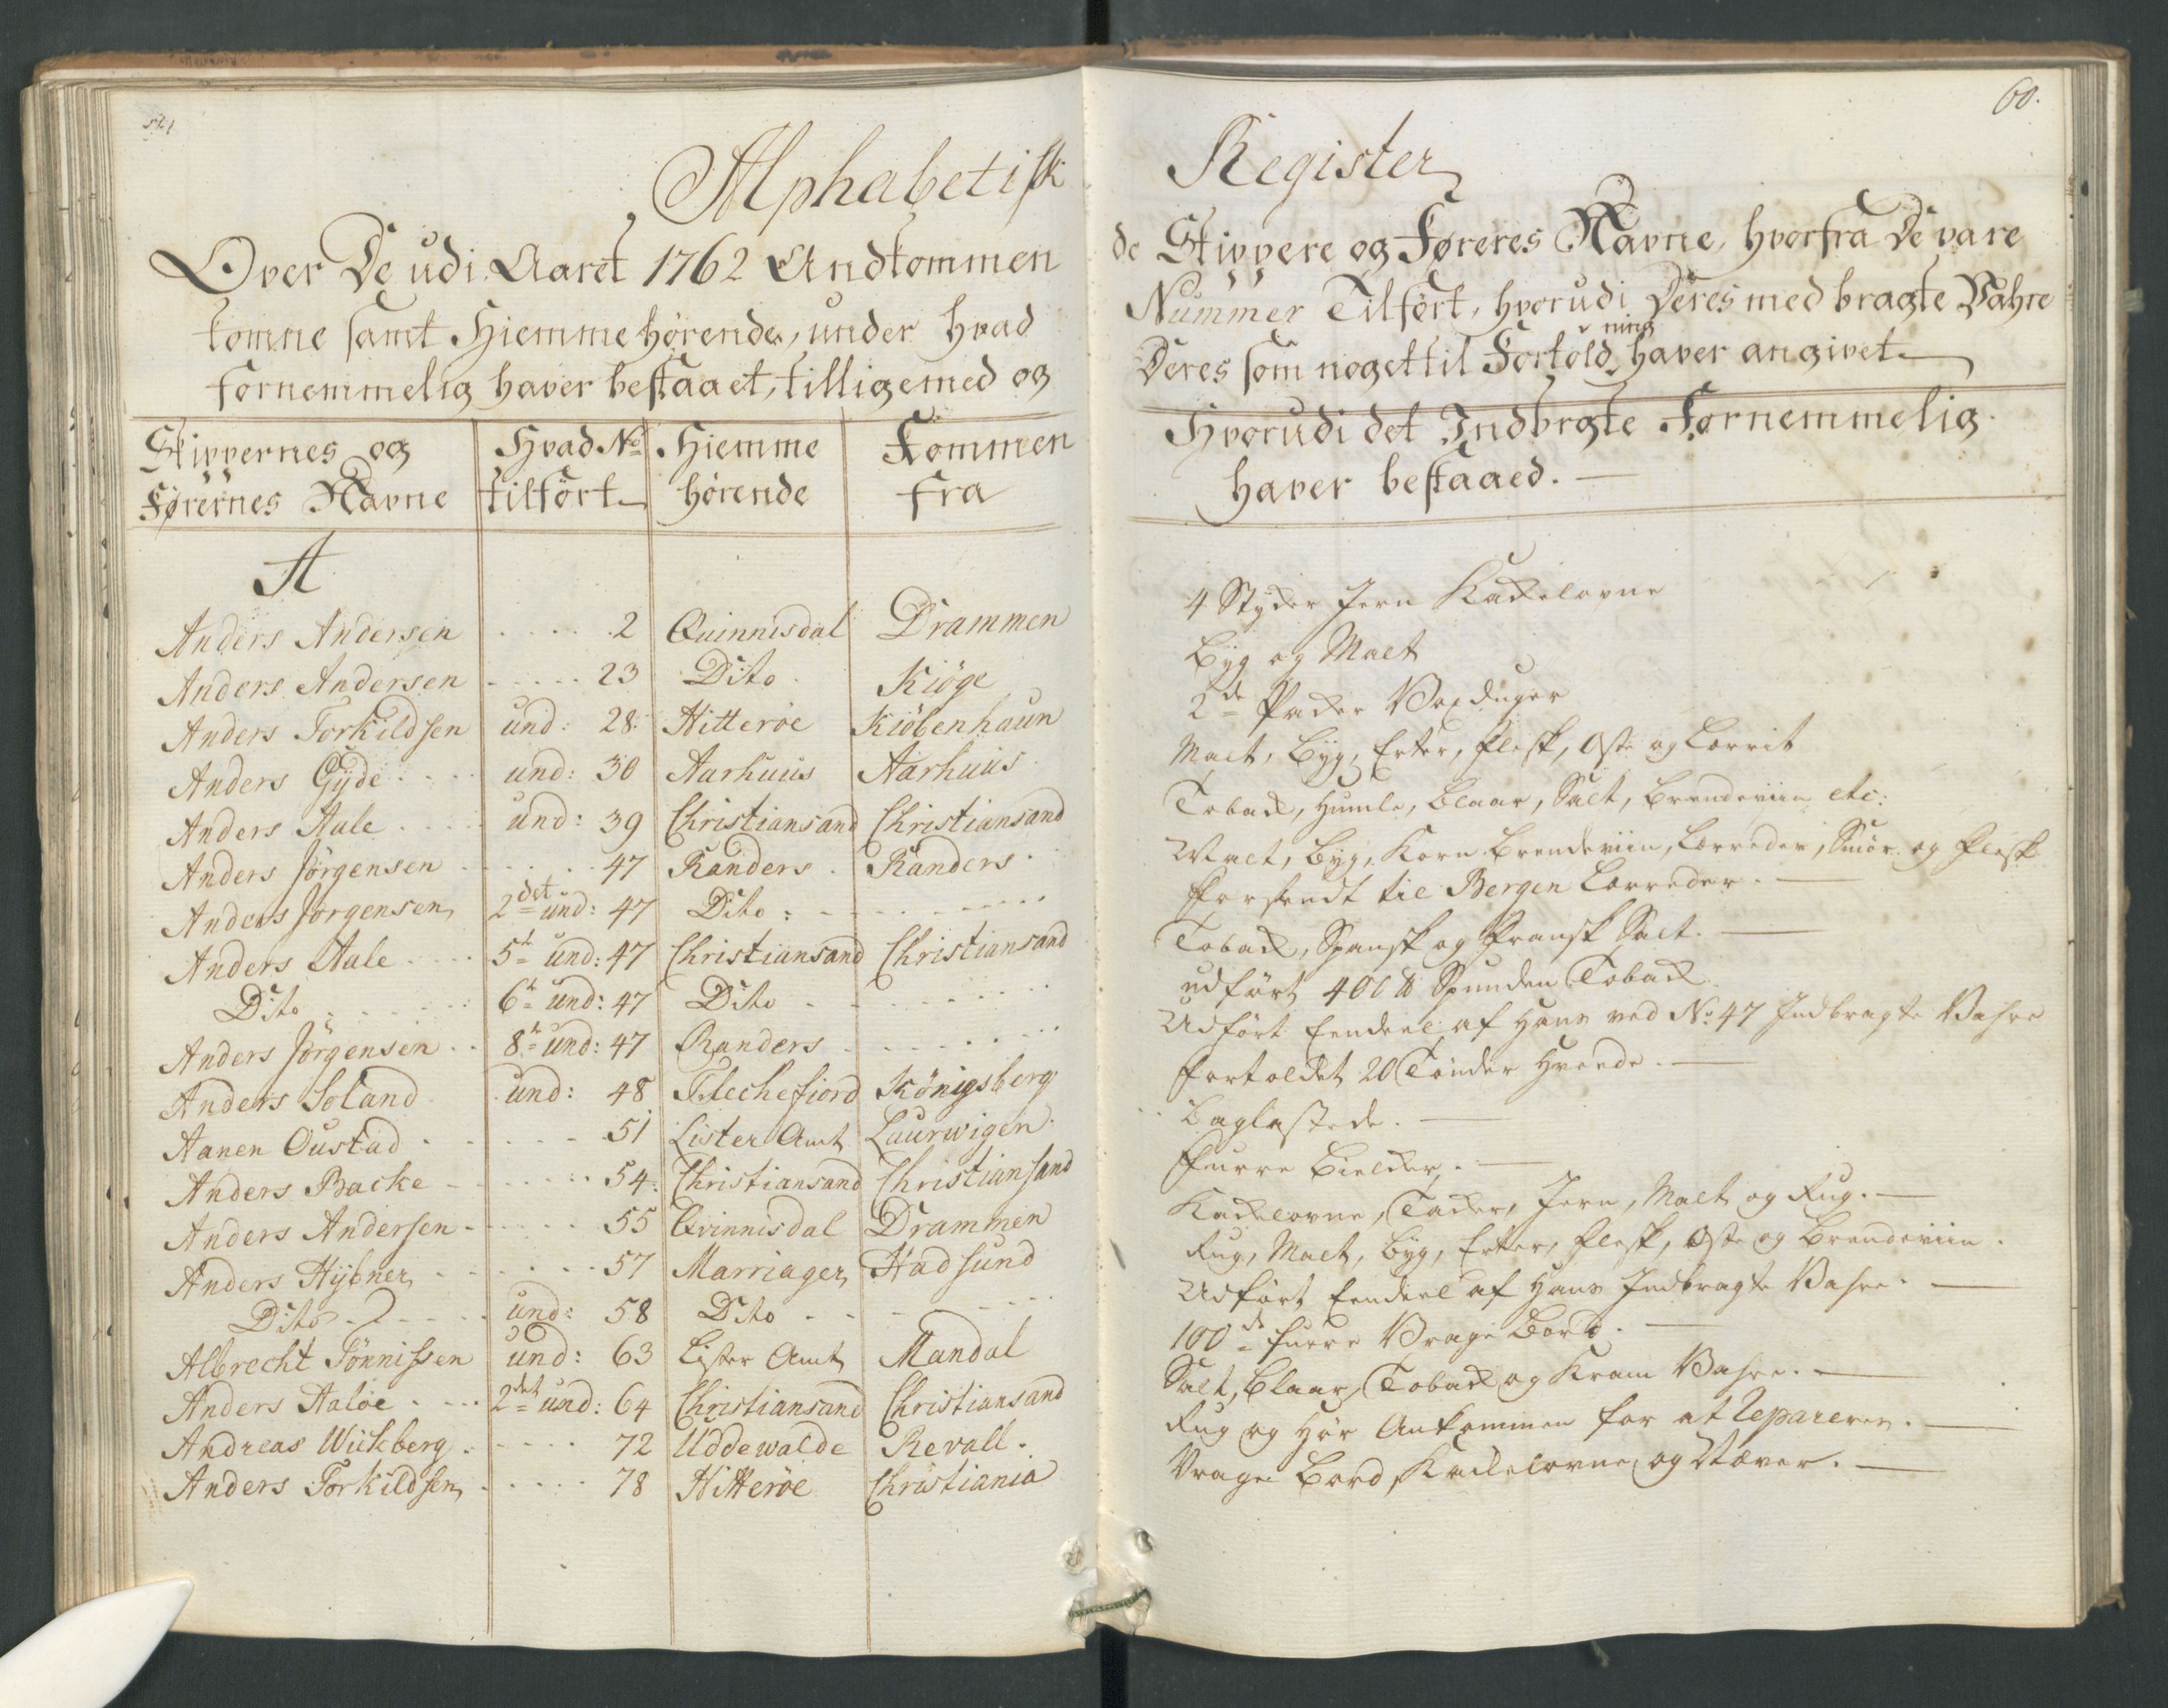 Alphabetisk Register
60.
Over De udi Aaret 1762 Andkommende Skippere og Føreres Navne, hvorfra De vare
komne samt Hiemmehørende, under hvad Nummer Tilført, hvorudi Deres med bragte Vahre
fornemmelig haver bestaaet, tilligemed og Deres som noget til Fortoldning haver angivet
Skippernes og Førernes Navne | Hvad No tilført | Hiemme hørende | Kommen fra | Hvorudi det Indbragte Fornemmelig haver bestaaed.
A
Anders Andersen | 2 | Quinnisdal | Drammen | 4 Stycker Jern Kackelovne
Anders Andersen | 23 | Dito | Kiöge | Byg og Malt
Anders Torkildsen | und: 28 | Hitteröe | Kiöbenhaun | 2de Packer Voxduger
Anders Gyde | und: 30 | Aarhuus | Aarhuus | Malt, Byg, Erter, Flesk, Oste og Lærrit
Anders Aale | und: 39 | Christiansand | Christiansand | Toback, Humle, Blaar, Salt, Brendeviin etc:
Anders Jörgensen | 47 | Randers | Randers | Malt, Byg, Korn Brendeviin, Lærreder, Smör og Flesk
Anders Jörgensen | 2det und: 47 | Dito | Forsendt til Bergen Lærreder.
Anders Aale | 5te und: 47 | Christiansand | Christiansand | Toback, Spansk og Fransk Salt.
Dito | 6te und: 47 | Dito | udfört 400 lb Spunden Toback
Anders Jörgensen | 8te und: 47 | Randers | Udfört Eendeel af Hans ved No 47 Indbragte Vahre
Anders Soland | und: 48 | Flechefiord | Königsberg | Fortoldet 20 Tönder Hvede.
Aanen Oustad | 51 | Lister Amt | Laurwigen | Baglastede.
Anders Backe | 54 | Christiansand | Christiansand | Furre Bielcker.
Anders Andersen | 55 | Qvinnisdal | Drammen | Kackelovne, Tacker, Jern, Malt og Rug.
Anders Hybner | 57 | Marriager | Hadsund | Rug, Malt, Byg, Erter, Flesk, Oste og Brendeviin.
Dito | und: 58 | Dito | Udfört Eendeel af Hans Indbragte Vahre.
Albrecht Tönnissen | und: 63 | Lister Amt | Mandal | 100de furre Vrage Bord.
Anders Aalöe | 2det und: 64 | Christiansand | Christiansand | Salt, Blaar, Toback og Kram Vahre.
Andreas Wickberg | 72 | Uddewalde | Revall. | Rug og Hör Ankommen for at Reparere.
Anders Torkildsen | 78 | Hitteröe | Christiania | Vrage Bord, Kackelovne og Staver.